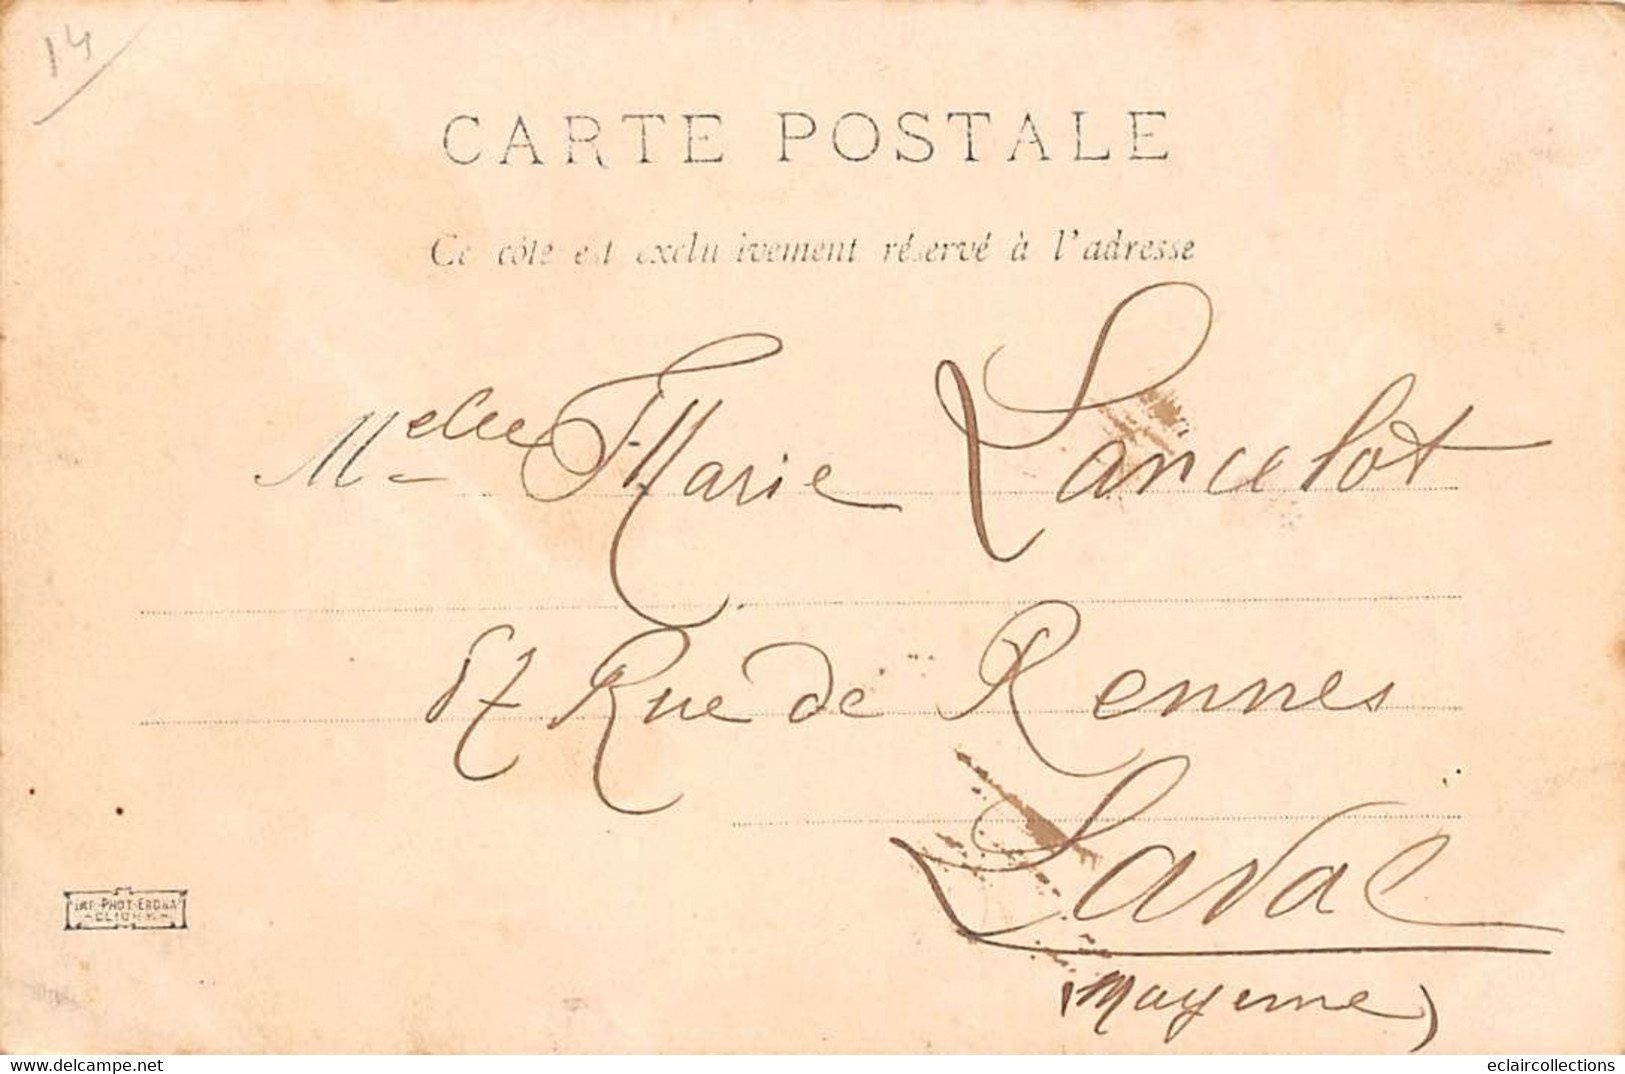 14
CARTE POSTALE
Ce côté est exclusivement réservé à l'adresse
Melle Marie Lancelot
57 Rue de Rennes
Laval
(Mayenne)
IMP. PHOT. ERDNA
CLICHY
eclaircollections
www.delcampe.net